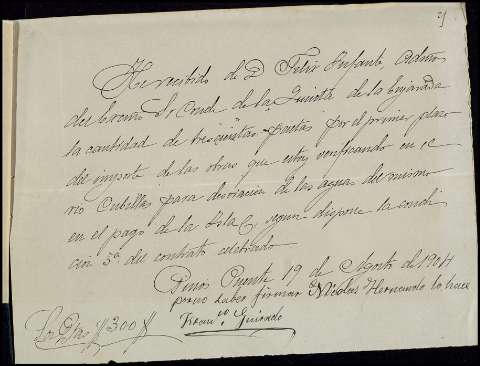 He recibido de D. Felix Infante, Admor
del Excmo Sr Conde de la Quinta de la Enjarada
la cantidad de trescientas pesetas por el primer plazo
del importe de las obras que estoy verificando en el
rio Cubillas para desviacion de las aguas del mismo
en el pago de la Isla, segun dispone la condi
cion 3ª del contrato celebrado
Pinos Puente 19 de Agosto de 1904
por no saber firmar Nicolas Hernando lo hace
Franco Guirado
Son Ptas 300